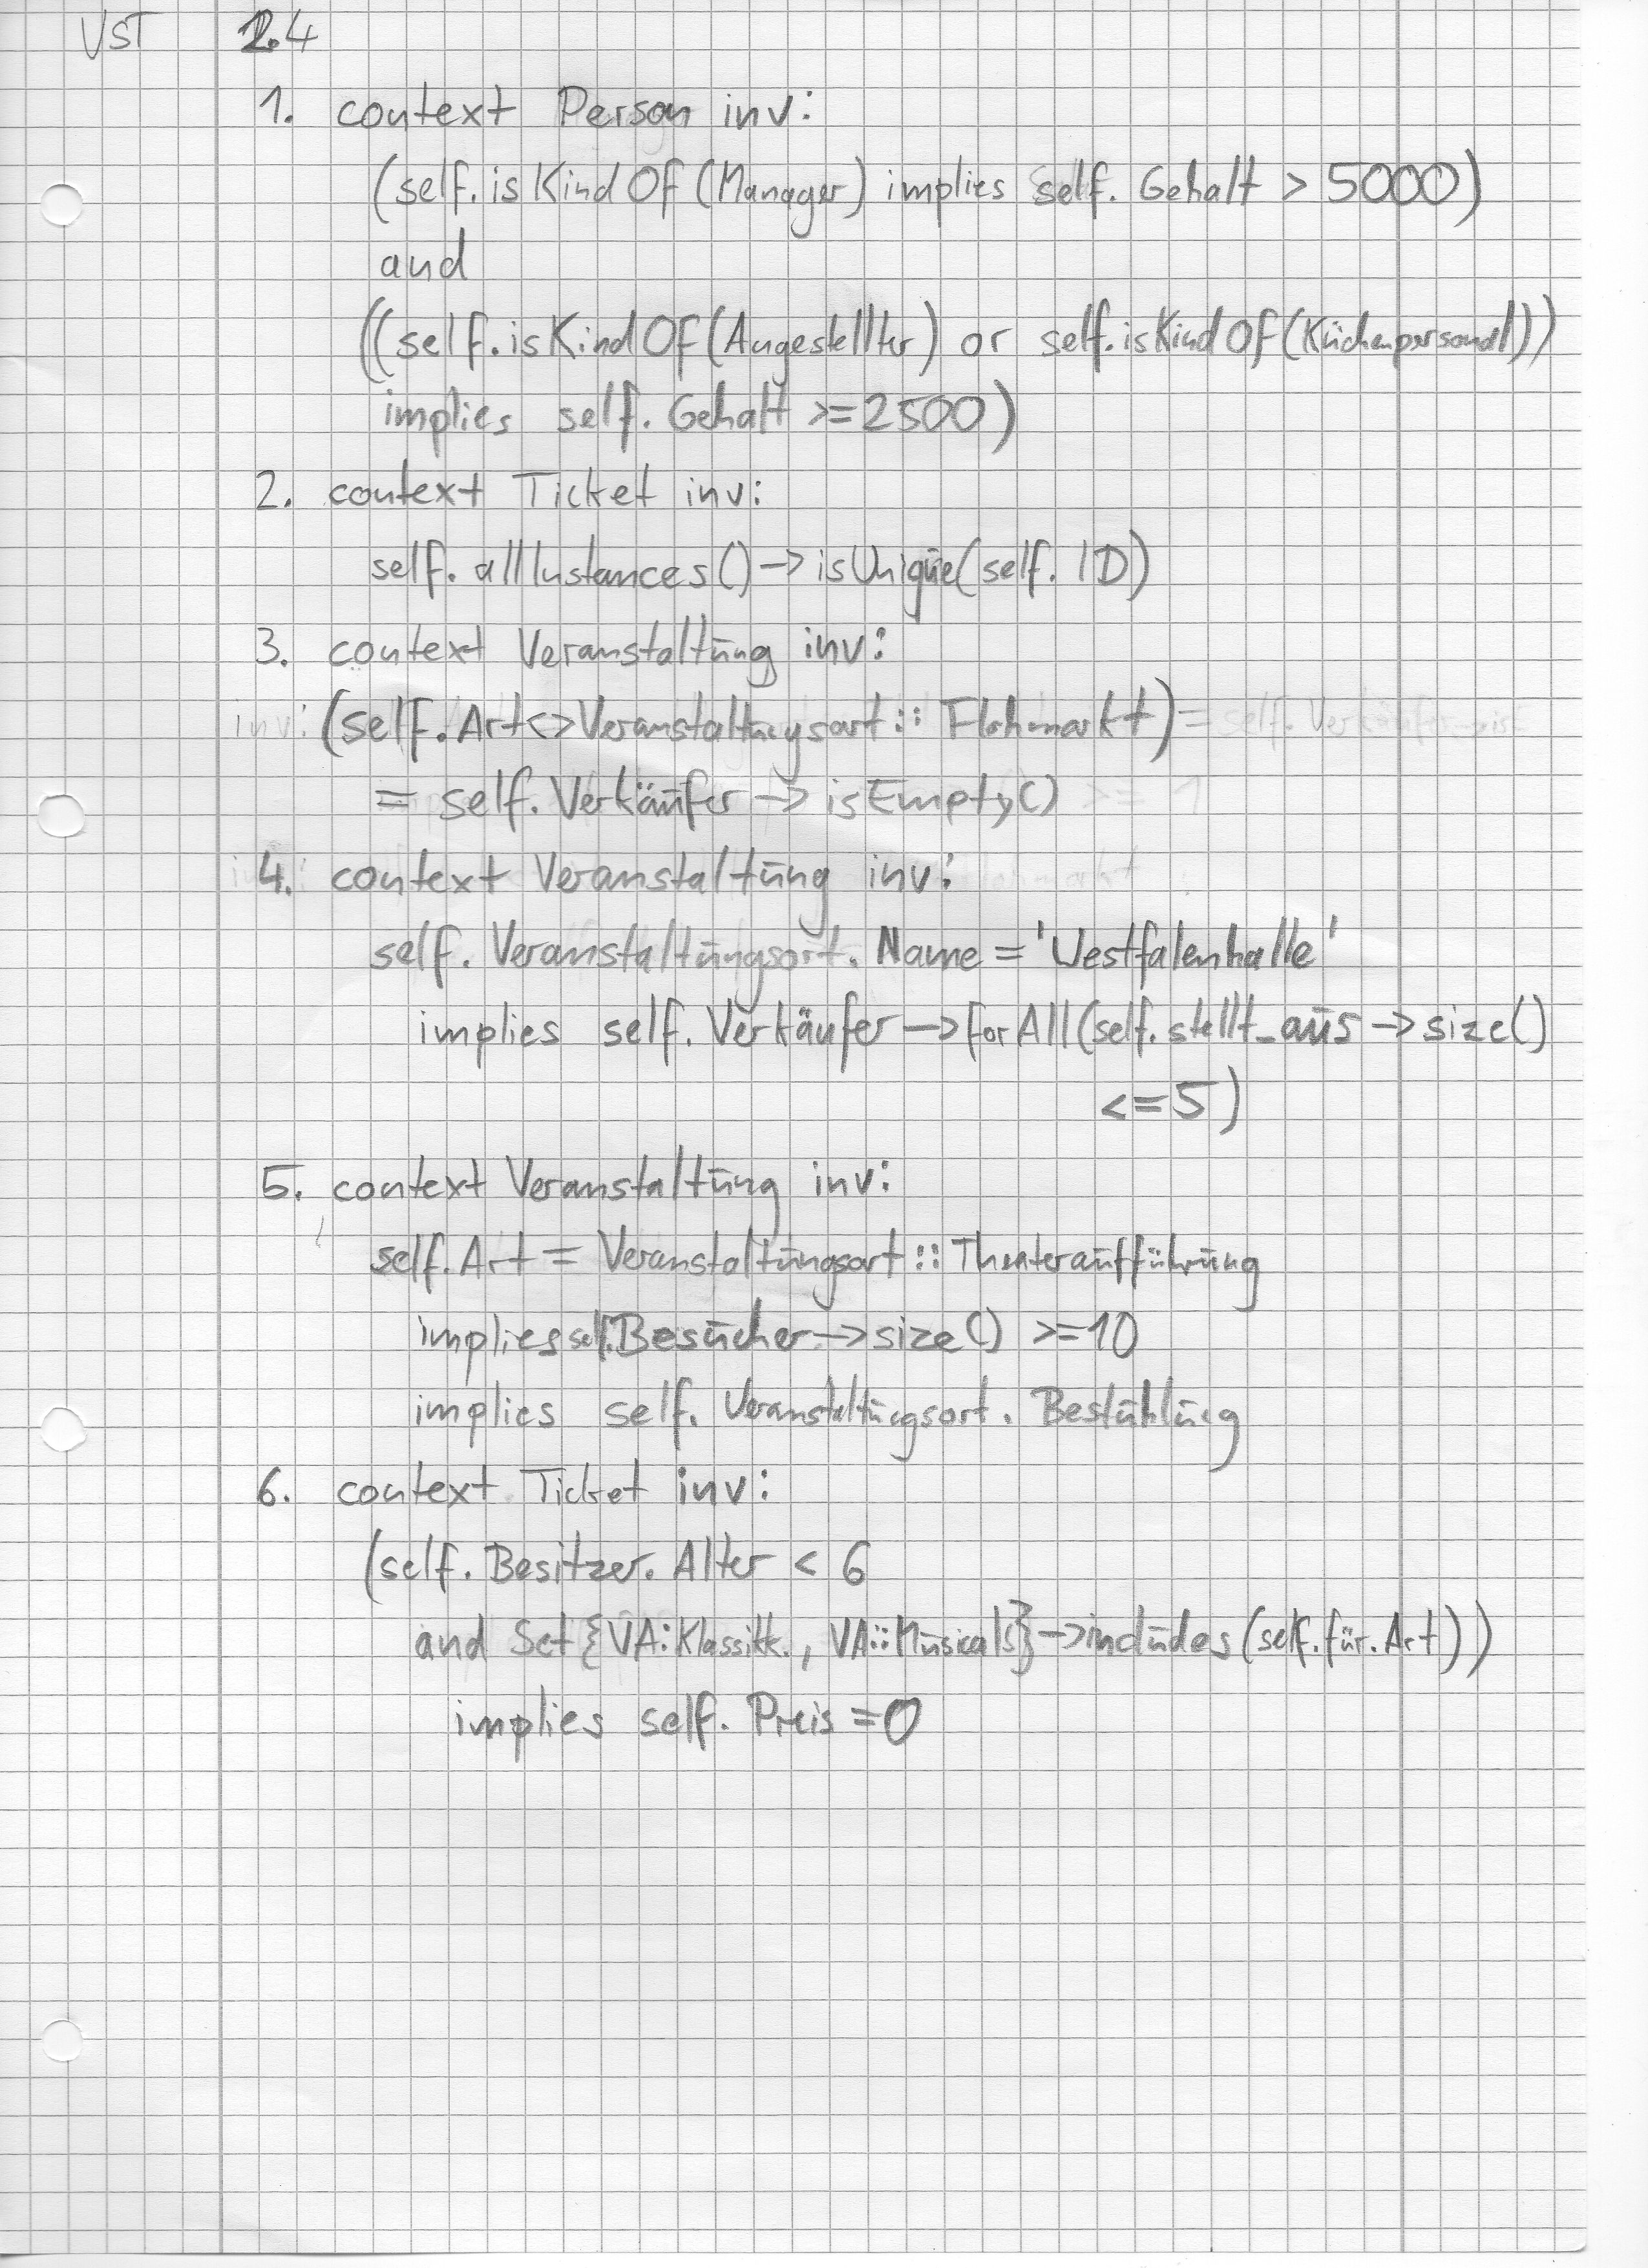 VST 2.4
1. context Person inv:
(self.isKindOf(Manager) implies self.Gehalt > 5000)
and
((self.isKindOf(Angestellter) or self.isKindOf(Küchenpersonal))
implies self.Gehalt >=2500)
2. context Ticket inv:
self.allInstances()->isUnique(self.ID)
3. context Veranstaltung inv:
inv: (self.Art<>Veranstaltungsart::Flohmarkt)
= self.Verkäufer->isEmpty()
4. context Veranstaltung inv:
self.Veranstaltungsort.Name='Westfalenhalle'
implies self.Verkäufer->forAll(self.stellt_aus->size()
<=5)
5. context Veranstaltung inv:
self.Art = Veranstaltungsart::Theateraufführung
implies self.Besucher->size() >=10
implies self.Veranstaltungsort.Bestuhlung
6. context Ticket inv:
(self.Besitzer.Alter < 6
and Set{VA::Klassikk., VA::Musicals}->includes(self.für.Art))
implies self.Preis=0